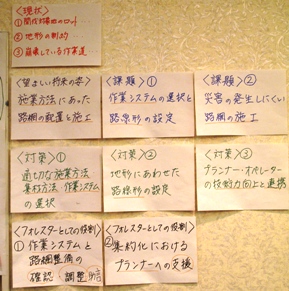 〈現状〉
②地形の制約…
③崩壊している作業道…
〈望ましい将来の姿〉
施業方法にあった
路網の配置と施工
〈課題〉①
作業システムの選択と
路線形の設定
〈課題〉②
災害の発生しにくい
路網の施工
〈対策〉①
適切な施業方法
集材方法 作業システム
の選択
〈対策〉②
地形にあわせた
路線形の設定
〈対策〉③
プランナー・オペレーター
の技術力向上と連携
〈フォレスターとしての役割〉
①作業システムと
路網整備の
確認 調整
〈フォレスターとしての役割〉
②集約化における
プランナーへの支援